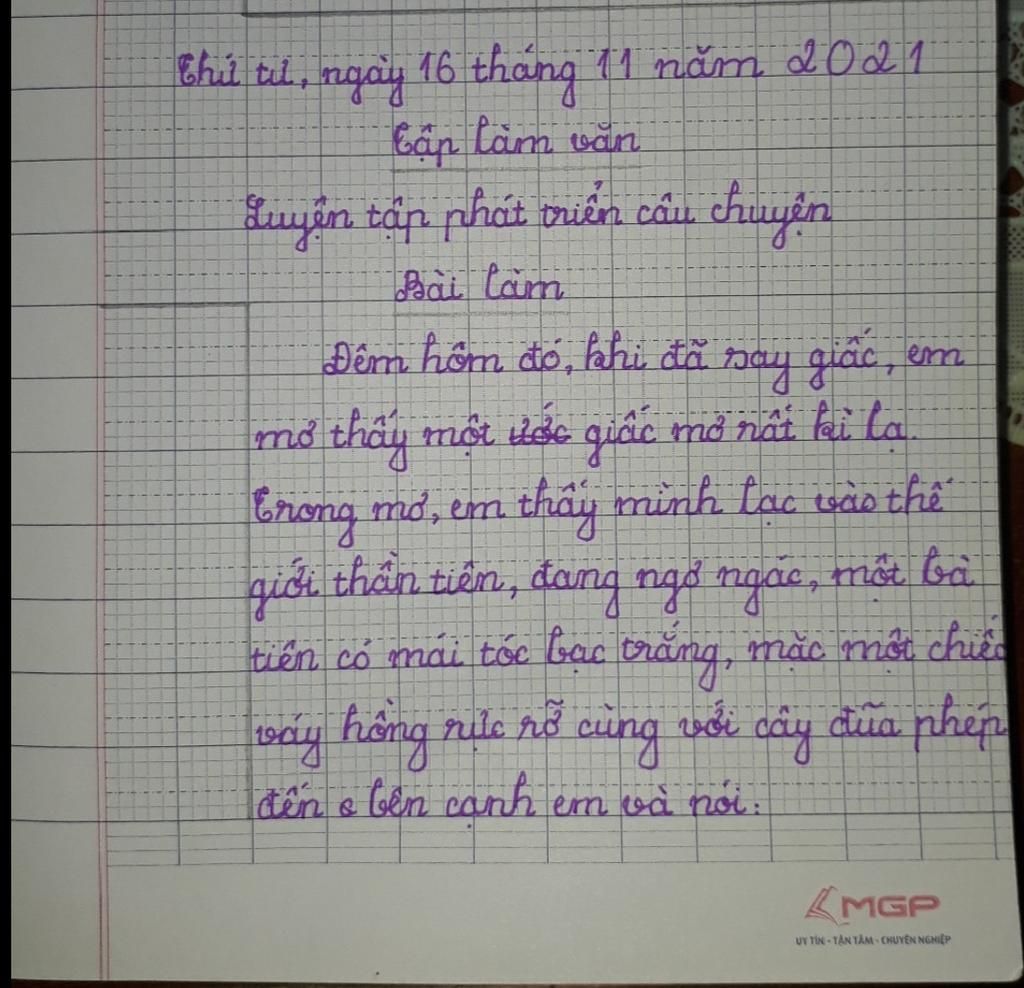 Thứ tư, ngày 16 tháng 11 năm 2021
Tập làm văn
Luyện tập phát triển câu chuyện
Bài làm
Đêm hôm đó, khi đã say giấc, em
mơ thấy một giấc mơ rất kì lạ.
Trong mơ, em thấy mình lạc vào thế
giới thần tiên, đang ngơ ngác, một bà
tiên có mái tóc bạc trắng, mặc một chiếc
váy hồng rực rỡ cùng với cây đũa phép
đến bên cạnh em và nói:
MGP
UY TÍN - TẬN TÂM - CHUYÊN NGHIỆP